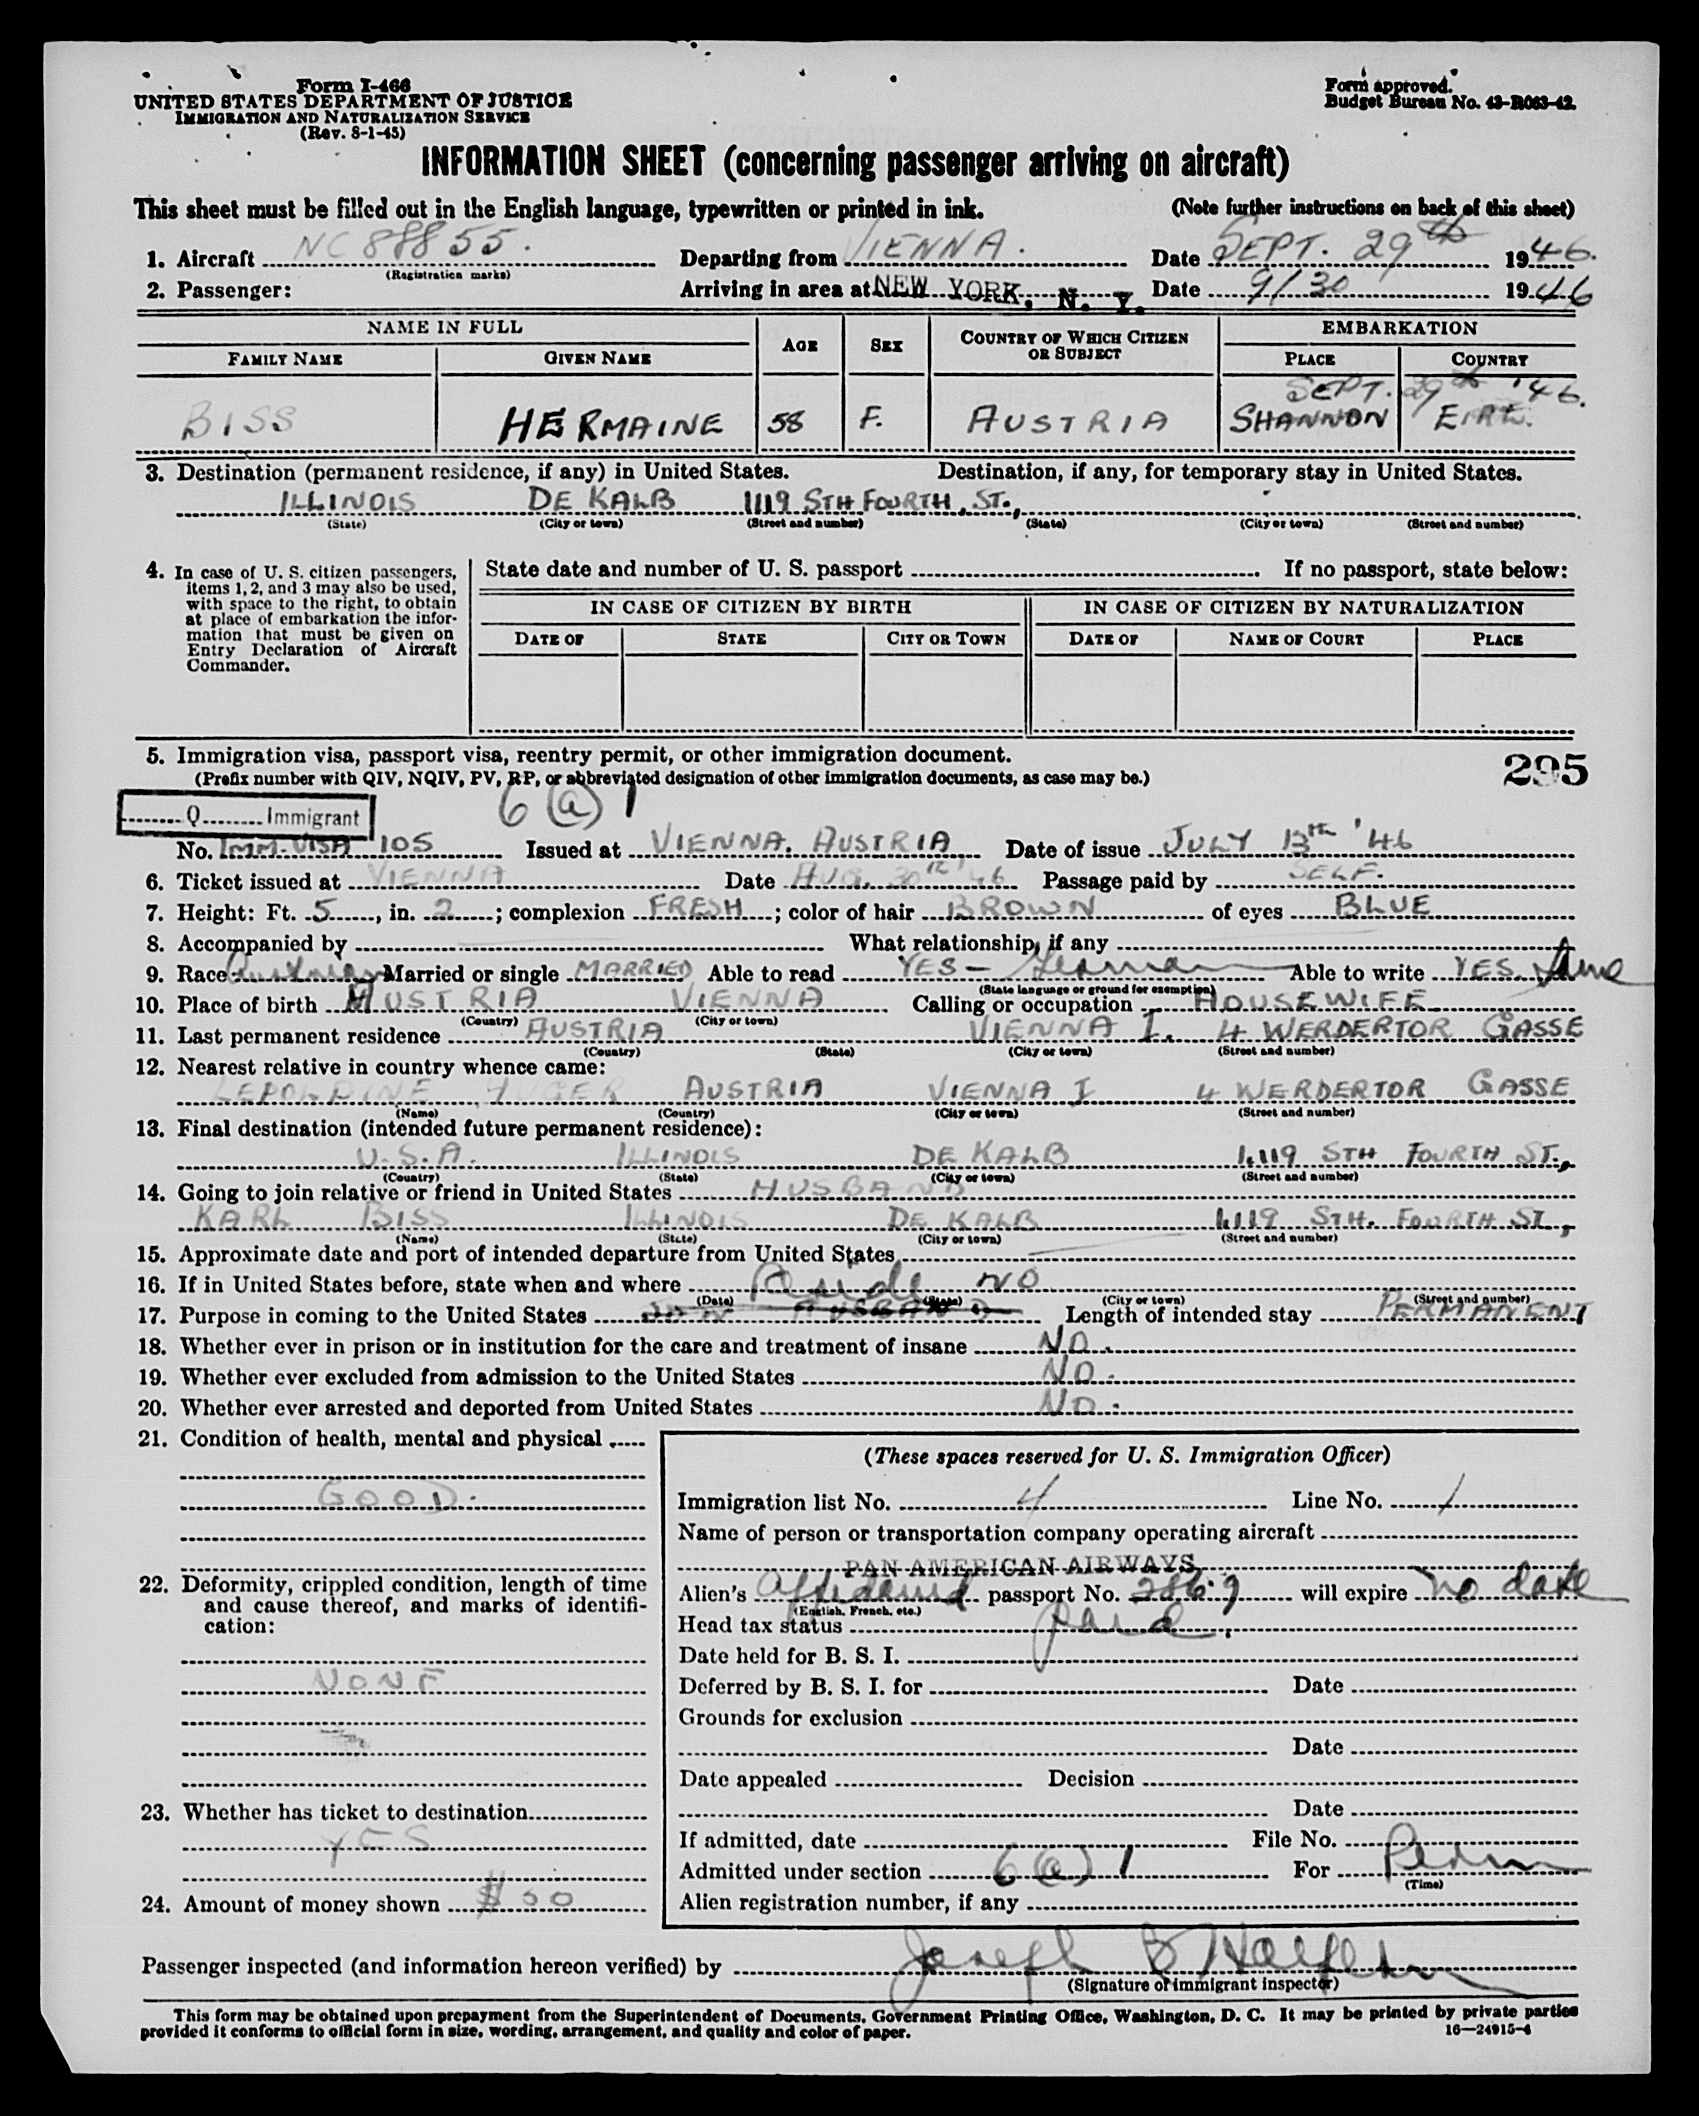 Form I-466
UNITED STATES DEPARTMENT OF JUSTICE
IMMIGRATION AND NATURALIZATION SERVICE
(Rev. 8-1-45)
Form approved.
Budget Bureau No. 43-R063-42.
INFORMATION SHEET (concerning passenger arriving on aircraft)
This sheet must be filled out in the English language, typewritten or printed in ink. (Note further instructions on back of this sheet)
1. Aircraft NC 88855. Departing from VIENNA. Date SEPT. 29th 1946.
(Registration marks)
2. Passenger: Arriving in area at NEW YORK, N. Y. Date 9/30 1946
NAME IN FULL AGE SEX COUNTRY OF WHICH CITIZEN OR SUBJECT EMBARKATION
FAMILY NAME GIVEN NAME PLACE COUNTRY
SEPT. 29th '46.
BISS HERMAINE 58 F. AUSTRIA SHANNON EIRE.
3. Destination (permanent residence, if any) in United States. Destination, if any, for temporary stay in United States.
ILLINOIS DE KALB 1119 STH FOURTH. ST.,
(State) (City or town) (Street and number) (State) (City or town) (Street and number)
4. In case of U. S. citizen passengers, items 1, 2, and 3 may also be used, with space to the right, to obtain at place of embarkation the information that must be given on Entry Declaration of Aircraft Commander.
State date and number of U. S. passport . If no passport, state below:
IN CASE OF CITIZEN BY BIRTH IN CASE OF CITIZEN BY NATURALIZATION
DATE OF STATE CITY OR TOWN DATE OF NAME OF COURT PLACE
5. Immigration visa, passport visa, reentry permit, or other immigration document. 295
(Prefix number with QIV, NQIV, PV, RP, or abbreviated designation of other immigration documents, as case may be.)
Q Immigrant 6 (a) 1
No. IMM. VISA 105 Issued at VIENNA. AUSTRIA Date of issue JULY 13th '46
6. Ticket issued at VIENNA Date AUG. 30th '46 Passage paid by SELF.
7. Height: Ft. 5, in. 2; complexion FRESH; color of hair BROWN of eyes BLUE
8. Accompanied by What relationship, if any
9. Race Married or single MARRIED Able to read YES - German Able to write YES. Same
(State language or ground for exemption)
10. Place of birth AUSTRIA VIENNA Calling or occupation HOUSEWIFE
(Country) (City or town)
11. Last permanent residence AUSTRIA VIENNA I. 4 WERDERTOR GASSE
(Country) (State) (City or town) (Street and number)
12. Nearest relative in country whence came:
AUSTRIA VIENNA I 4 WERDERTOR GASSE
(Name) (Country) (City or town) (Street and number)
13. Final destination (intended future permanent residence):
U.S.A. ILLINOIS DE KALB 1119 STH FOURTH ST.,
(Country) (State) (City or town) (Street and number)
14. Going to join relative or friend in United States HUSBAND
KARL BISS ILLINOIS DE KALB 1119 STH. FOURTH ST.,
(Name) (State) (City or town) (Street and number)
15. Approximate date and port of intended departure from United States
16. If in United States before, state when and where NO
(Date) (State) (City or town) (Street and number)
17. Purpose in coming to the United States Reside JOIN HUSBAND Length of intended stay PERMANENT
18. Whether ever in prison or in institution for the care and treatment of insane NO.
19. Whether ever excluded from admission to the United States NO.
20. Whether ever arrested and deported from United States NO.
21. Condition of health, mental and physical
GOOD.
22. Deformity, crippled condition, length of time and cause thereof, and marks of identification:
NONE
23. Whether has ticket to destination
YES
24. Amount of money shown $50
(These spaces reserved for U. S. Immigration Officer)
Immigration list No. 4 Line No. 1
Name of person or transportation company operating aircraft
PAN AMERICAN AIRWAYS
Alien's Affidavit passport No. will expire no date
(English, French, etc.)
Head tax status paid.
Date held for B. S. I.
Deferred by B. S. I. for Date
Grounds for exclusion
Date
Date appealed Decision
Date
If admitted, date File No.
Admitted under section 6 (a) 1 For Perm
(Time)
Alien registration number, if any
Passenger inspected (and information hereon verified) by Joseph B
(Signature of immigrant inspector)
This form may be obtained upon prepayment from the Superintendent of Documents, Government Printing Office, Washington, D. C. It may be printed by private parties
provided it conforms to official form in size, wording, arrangement, and quality and color of paper. 16—24915-4